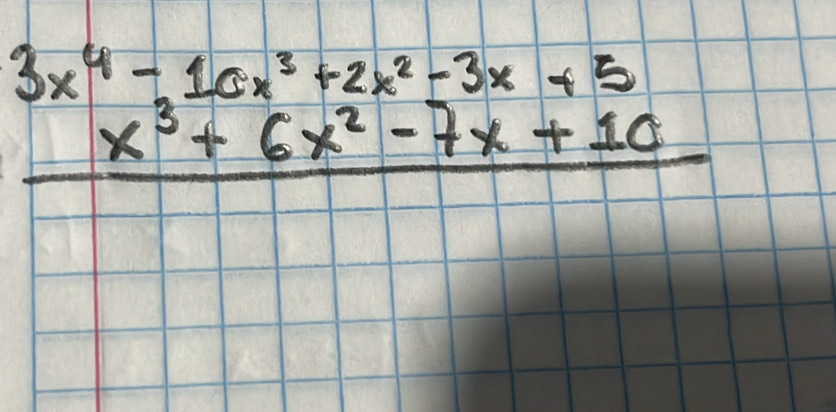 3x⁴ - 10x³ + 2x² - 3x + 5
x³ + 6x² - 7x + 10